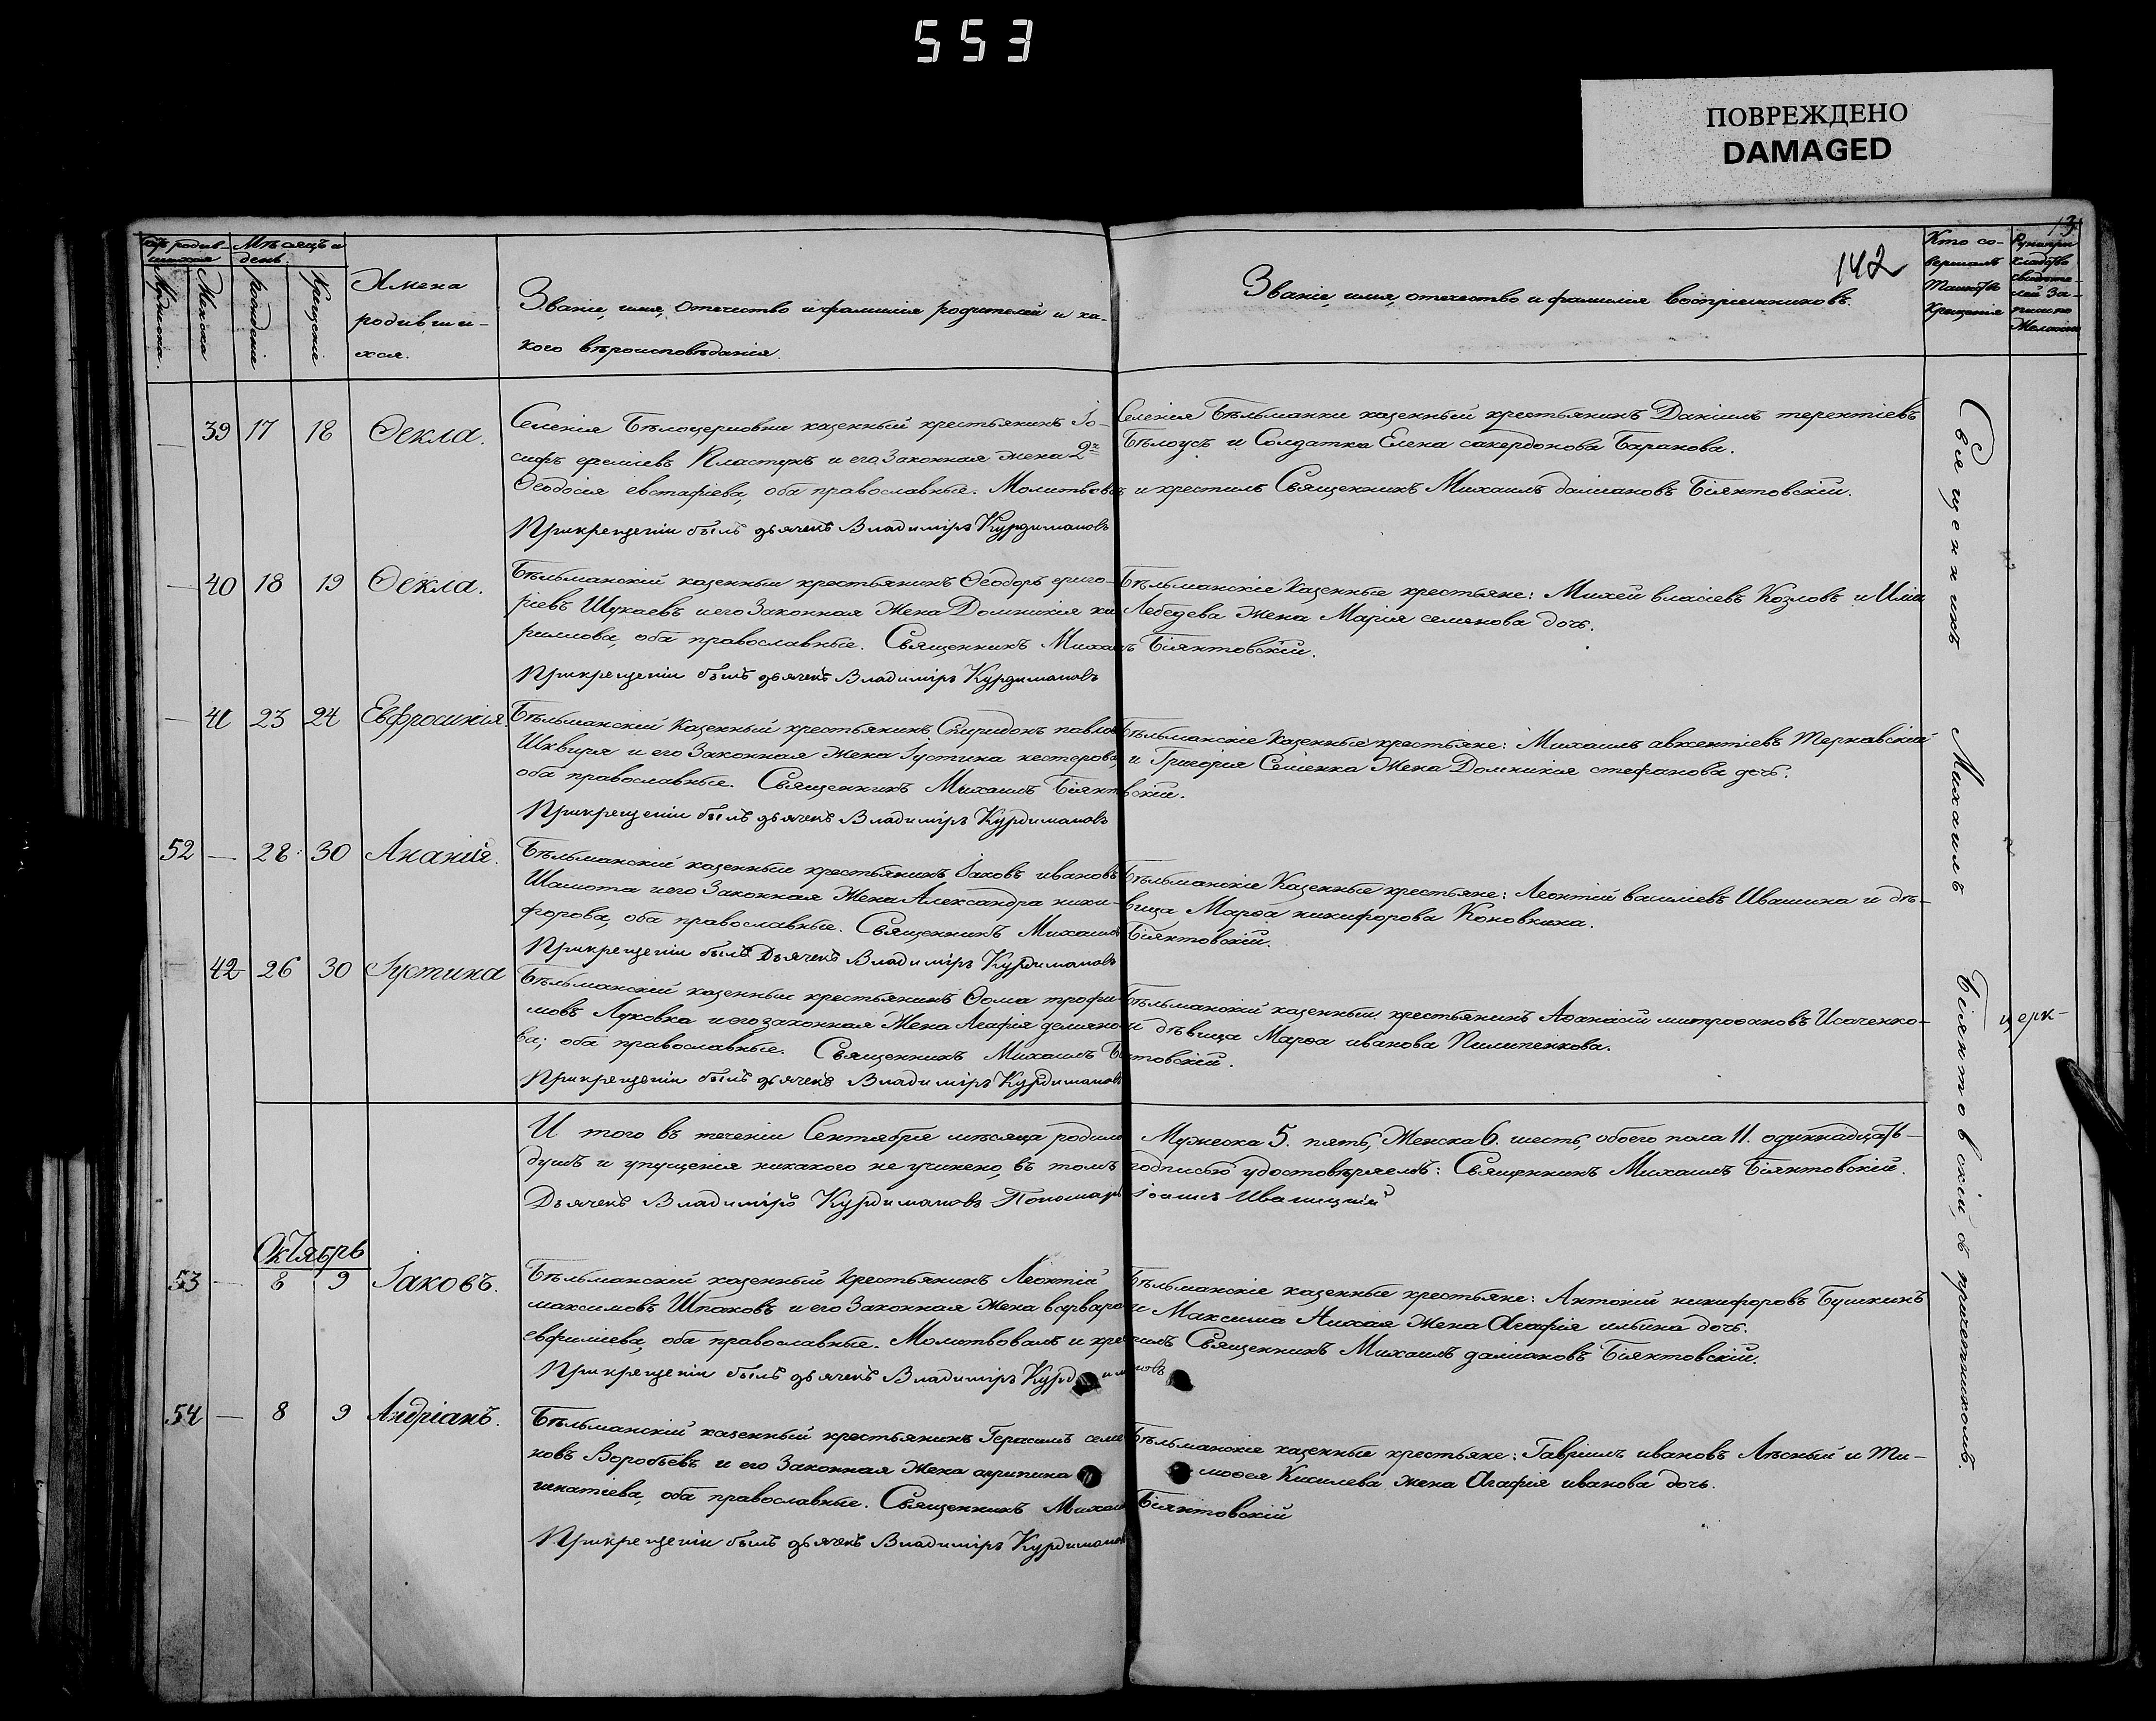 553
ПОВРЕЖДЕНО
DAMAGED
142
Мѣсяцъ и
день.
Мужеска.
Женска
рожденіе
Крещеніе
Имена
родивши-
хся.
Званіе, имя, отечество и фамилія родителей и ка-
кого вѣроисповѣданія.
Званіе, имя, отечество и фамилія воспріемниковъ.
Кто со-
вершалъ
таинство
Крещенія
39 17 18 Ѳекла.
Селенія Бѣлоцерковки казенный крестьянинъ Іо-
сифъ ереміевъ Пластунъ и его Законная жена 2я
Ѳеодосія евстафіева, оба православные. Молитвовалъ и крестилъ Священникъ Михаилъ даміановъ Біянтовскій.
При крещеніи былъ дьячекъ Владиміръ Курдимановъ
Селенія Бѣльманки казенный крестьянинъ Даніилъ терентіевъ
Бѣлоусъ и Солдатка Елена сакердонова Баранова.
40 18 19 Ѳекла.
Бѣльманскій казенный крестьянинъ Ѳеодоръ григо-
ріевъ Шукаевъ и его Законная Жена Домникія ки
риллова, оба православные. Священникъ Михаилъ Біянтовскій.
При крещеніи былъ дьячекъ Владиміръ Курдимановъ
Бѣльманскіе Казенные крестьяне: Михей власіевъ Козловъ и Иліи
Лебедева Жена Марія семенова дочь.
41 23 24 Евфросинія.
Бѣльманскій Казенный крестьянинъ Спиридонъ павловъ
Шквиря и его Законная Жена Іустина нестерова,
оба православные. Священникъ Михаилъ Біянтовскій.
При крещеніи былъ дьячекъ Владиміръ Курдимановъ
Бѣльманскіе Казенные крестьяне: Михаилъ авксентіевъ Терновскій
и Григорія Семенка Жена Домникія стефанова дочь.
52 — 28 30 Ананія.
Бѣльманскій казенный крестьянинъ Іаковъ ивановъ
Шамота и его Законная Жена Александра ники-
форова, оба православные. Священникъ Михаилъ Біянтовскій.
При крещеніи былъ Дьячекъ Владиміръ Курдимановъ
Бѣльманскіе Казенные крестьяне: Леонтій василіевъ Ивашина и дѣ-
вица Марѳа никифорова Коновкина.
42 26 30 Іустина
Бѣльманскій казенный крестьянинъ Ѳома трофи-
мовъ Луковка и его законная Жена Агафія демьяно-
ва; оба православные. Священникъ Михаилъ Біянтовскій.
При крещеніи былъ дьячекъ Владиміръ Курдимановъ
Бѣльманскій казенный крестьянинъ Аѳанасій митрофановъ Исаченко-
и дѣвица Марѳа иванова Пилипенкова.
И того въ теченіи Сентября мѣсяца родилось Мужеска 5. пять, Женска 6. шесть, обоего пола 11. одиннадцать-
душъ и упущенія никакого не учинено, въ томъ подписью удостовѣряемъ: Священникъ Михаилъ Біянтовскій.
Дьячекъ Владиміръ Курдимановъ Пономарь Іоаннъ
Октябрь
53 — 8 9 Іаковъ.
Бѣльманскій казенный крестьянинъ Леонтій
максимовъ Шпаковъ и его Законная жена варвара
евфиміева, оба православные. Молитвовалъ и крестилъ Священникъ Михаилъ даміановъ Біянтовскій.
При крещеніи былъ дьячекъ Владиміръ Курдимановъ
Бѣльманскіе казенные крестьяне: Антоній никифоровъ Бушкинъ
и Максима Лихая Жена Агафія ильина дочь.
54 — 8 9 Андріанъ.
Бѣльманскій казенный крестьянинъ Герасимъ семе
новъ Воробьевъ и его Законная Жена агрипина
игнатіева, оба православные. Священникъ Михаилъ Біянтовскій
При крещеніи былъ дьячекъ Владиміръ Курдимановъ
Бѣльманскіе казенные крестьяне: Гавріилъ ивановъ Лѣсный и Ти-
моѳея Киселева жена Агафія иванова дочь.
Священникъ Михаилъ Біянтовскій, съ причетникомъ.
церк-